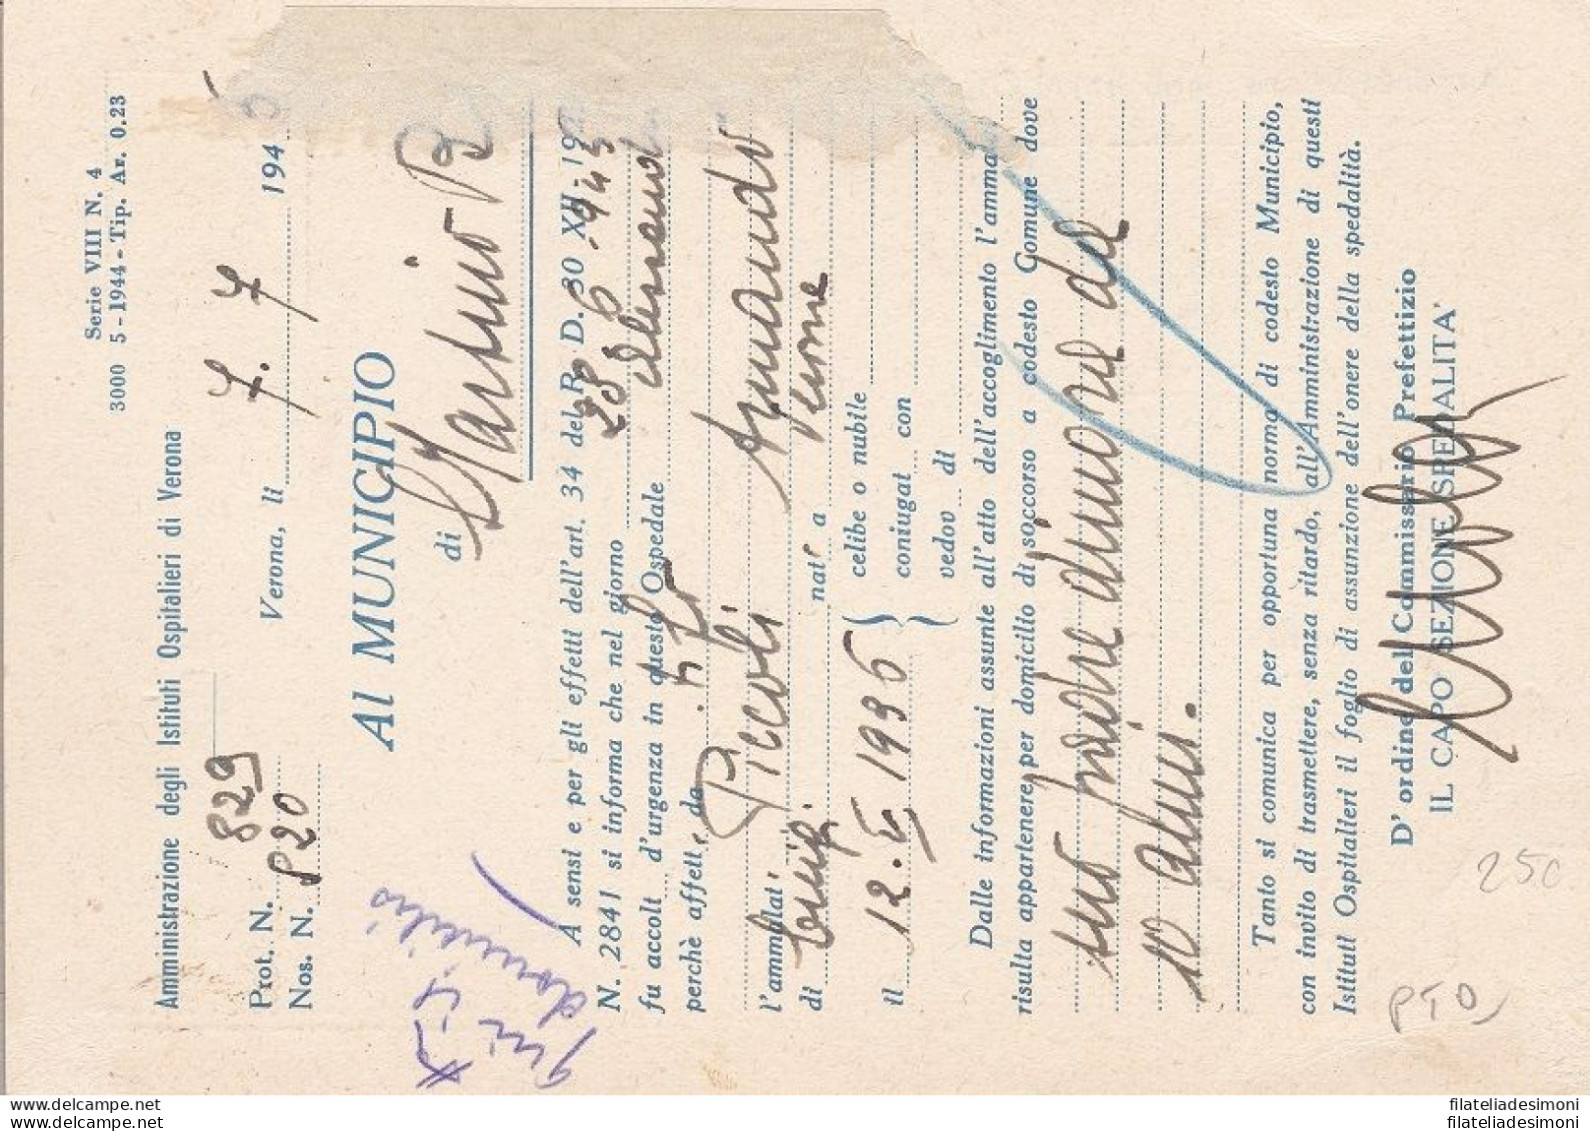 Serie VIII N. 4
3000 5-1944 - Tip. Ar. 0.23
Amministrazione degli Istituti Ospitalieri di Verona
Prot. N. 829
Nos. N. 820
Verona, li 7.7 1945
Al MUNICIPIO
di S. Martino B
A sensi e per gli effetti dell'art. 34 del R. D. 30 XII. 19
N. 2841 si informa che nel giorno 28 6.943
fu accolt d'urgenza in questo Ospedale
perchè affett da
l'ammalat Piccoli Armando
di Luigi nat a Verona
il 12.5.1936
celibe o nubile
coniugat con
vedov di
Dalle informazioni assunte all'atto dell'accoglimento l'ammal
risulta appartenere per domicilio di soccorso a codesto Comune dove
suo padre dimora da
10 anni.
Tanto si comunica per opportuna norma di codesto Municipio,
con invito di trasmettere, senza ritardo, all'Amministrazione di questi
Istituti Ospitalieri il foglio di assunzione dell'onere della spedalità.
D'ordine del Commissario Prefettizio
IL CAPO SEZIONE SPEDALITA'
250
PTO
www.delcampe.net
filateliadesimoni
www.delcampe.net
filateliadesimoni